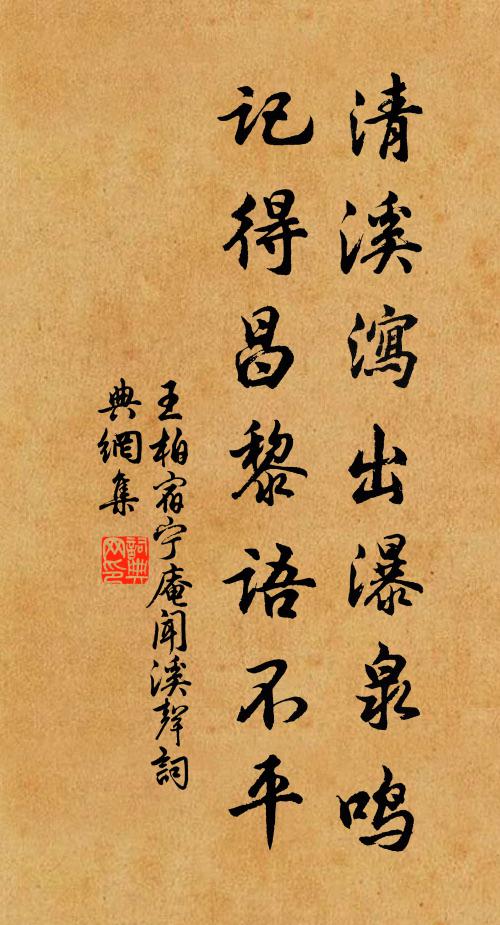 清溪瀉出瀑泉鸣
记得昌黎语不平
王柏宿宁庵闻溪聲詞
典網集
詞典
网印